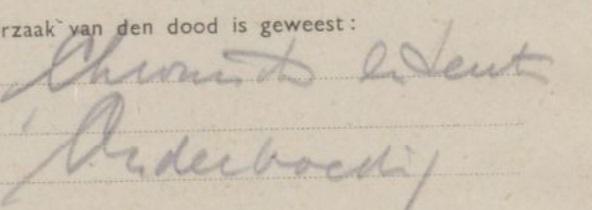 rzaak van den dood is geweest:
Chronische enterit
Ondervoeding